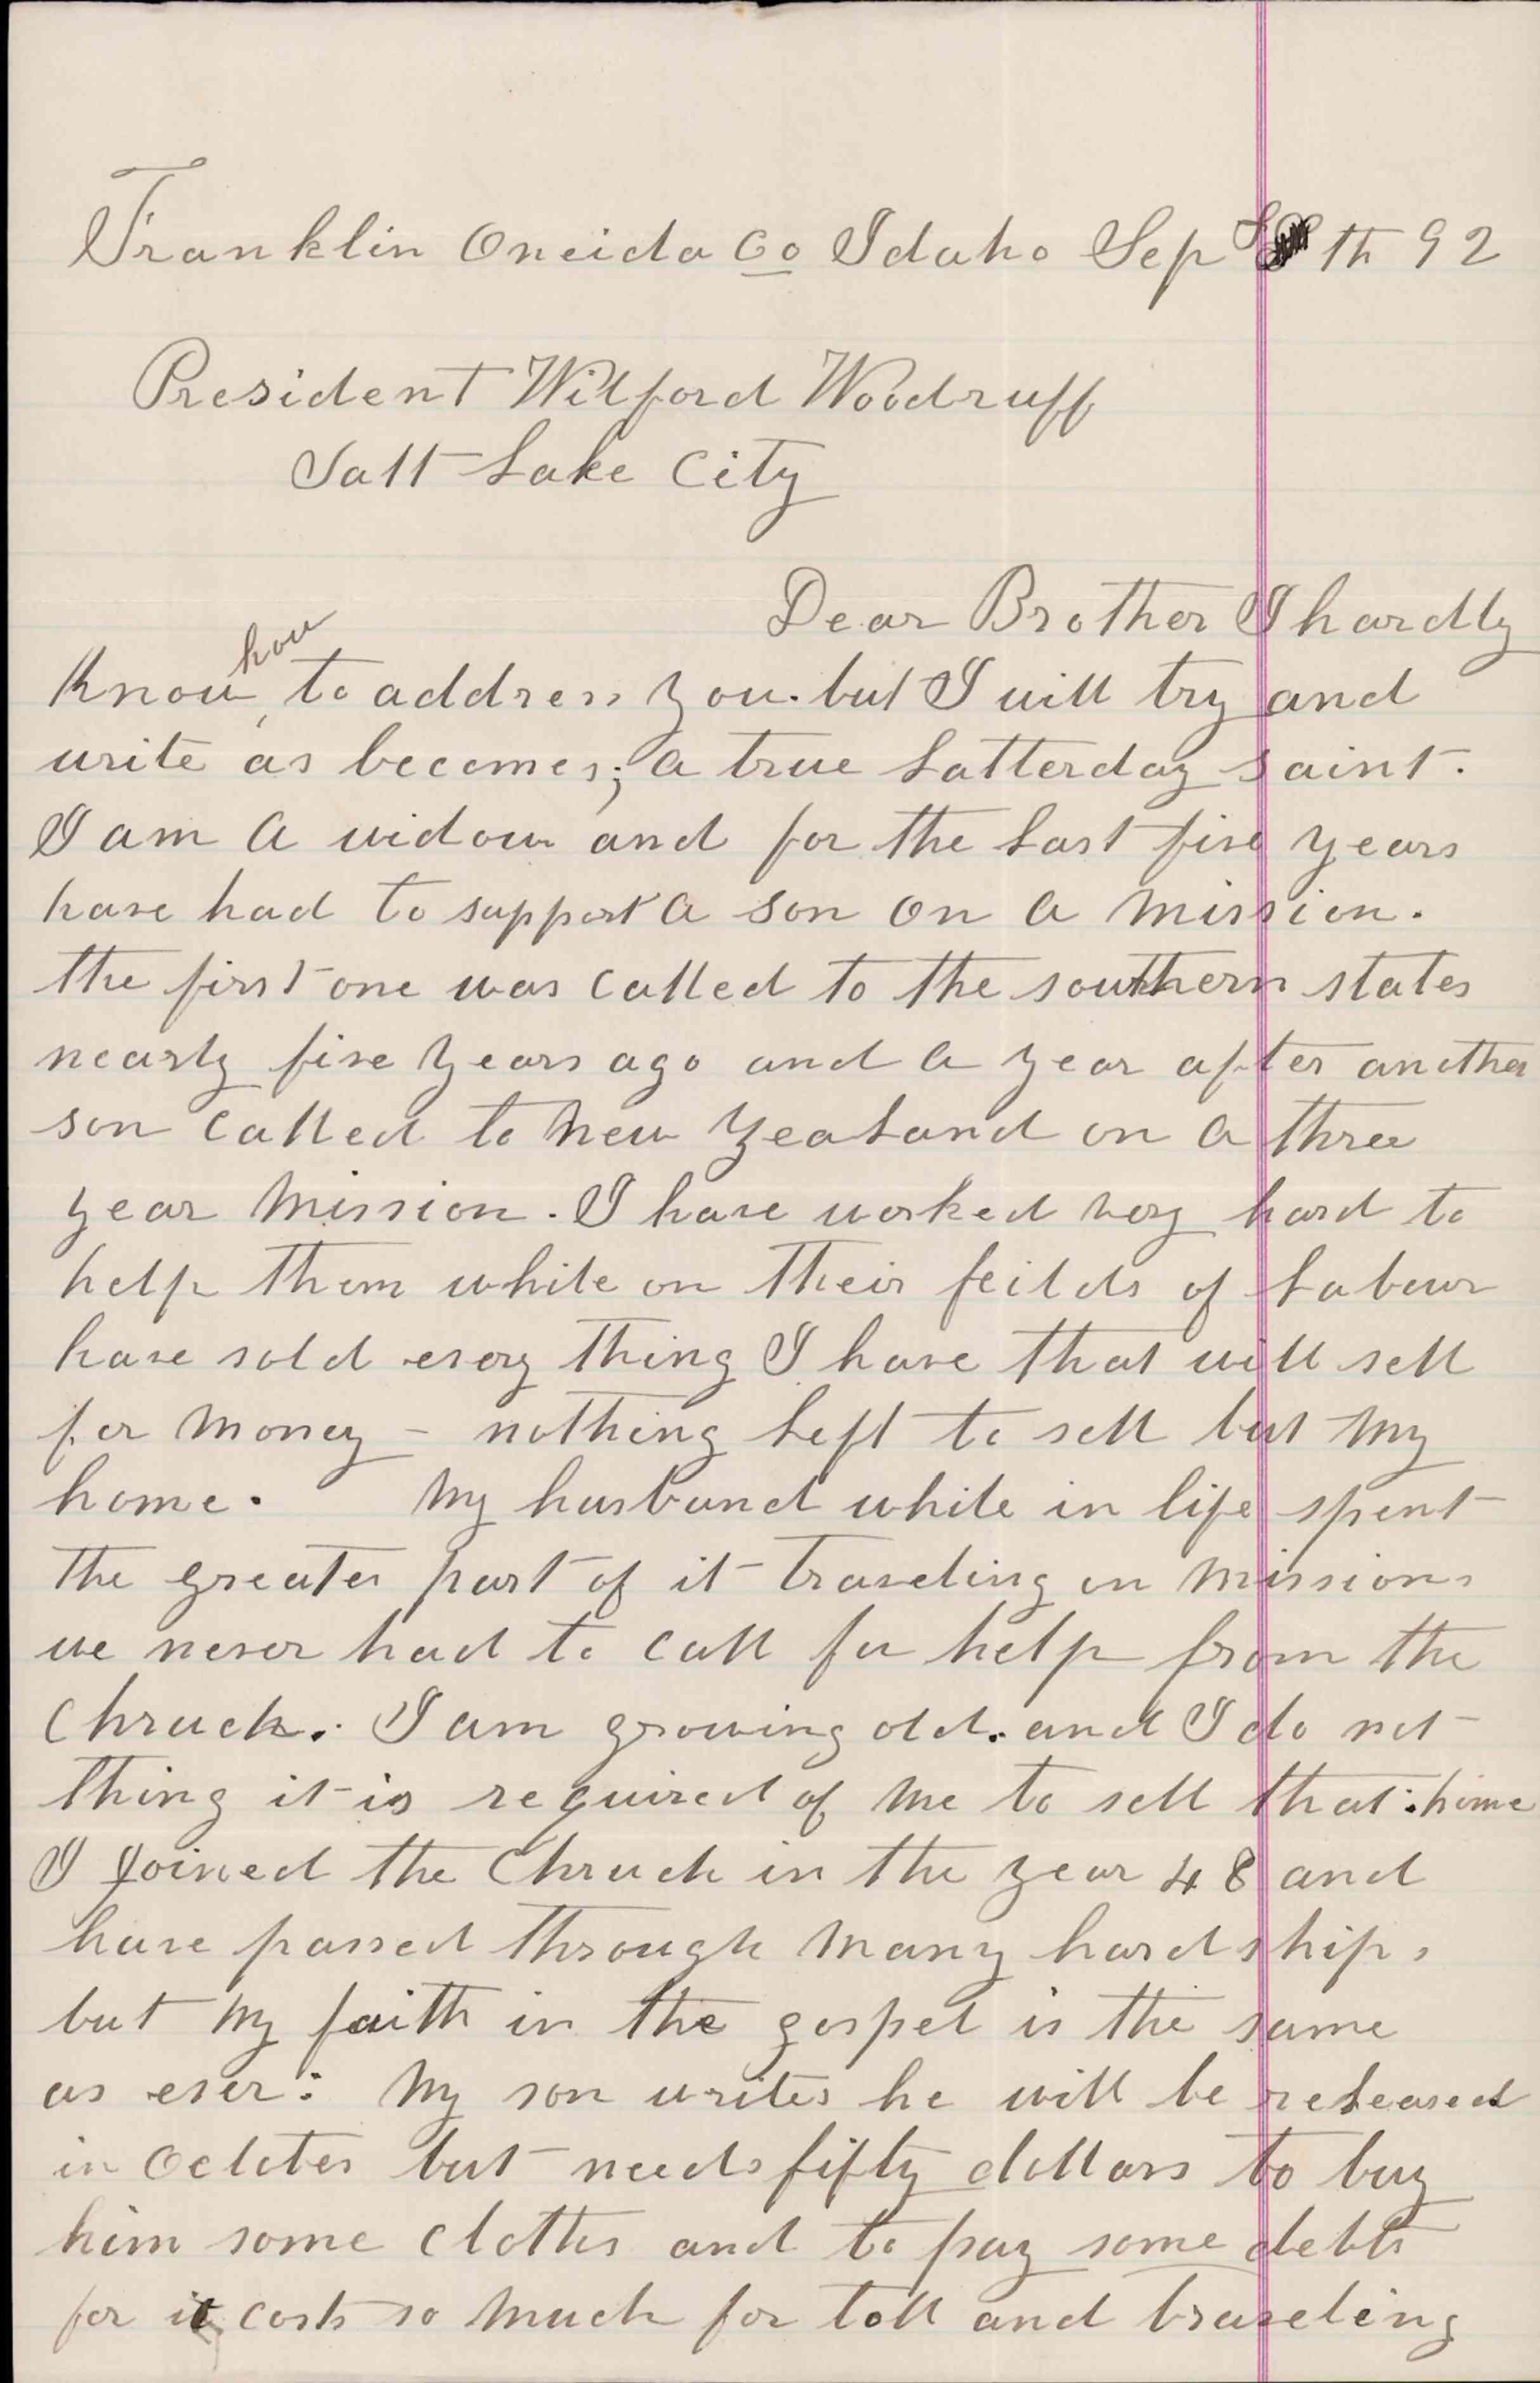 Franklin Oneida Co Idaho Sep 8 th 92
President Wilford Woodruff
Salt Lake City
Dear Brother I hardly
how
know to address you. but I will try and
write as becomes; a true Latterday saint.
I am a widow and for the last five years
have had to support a son on a mission.
the first one was called to the southern states
nearly five years ago and a year after another
son called to New Zealand on a three
year mission. I have worked very hard to
help them while on their feilds of labour
have sold every thing I have that will sell
for money - nothing left to sell but my
home. My husband while in life spent
the greater part of it traveling on missions
we never had to call for help from the
Chruch. I am growing old. and I do not
thing it is required of me to sell that: home
I joined the Chruch in the year 48 and
have passed through many hardships
but my faith in the gospel is the same
as ever: My son writes he will be released
in Octoter but needs fifty dollars to buy
him some clothes and to pay some debts
for it costs so much for toll and traveling